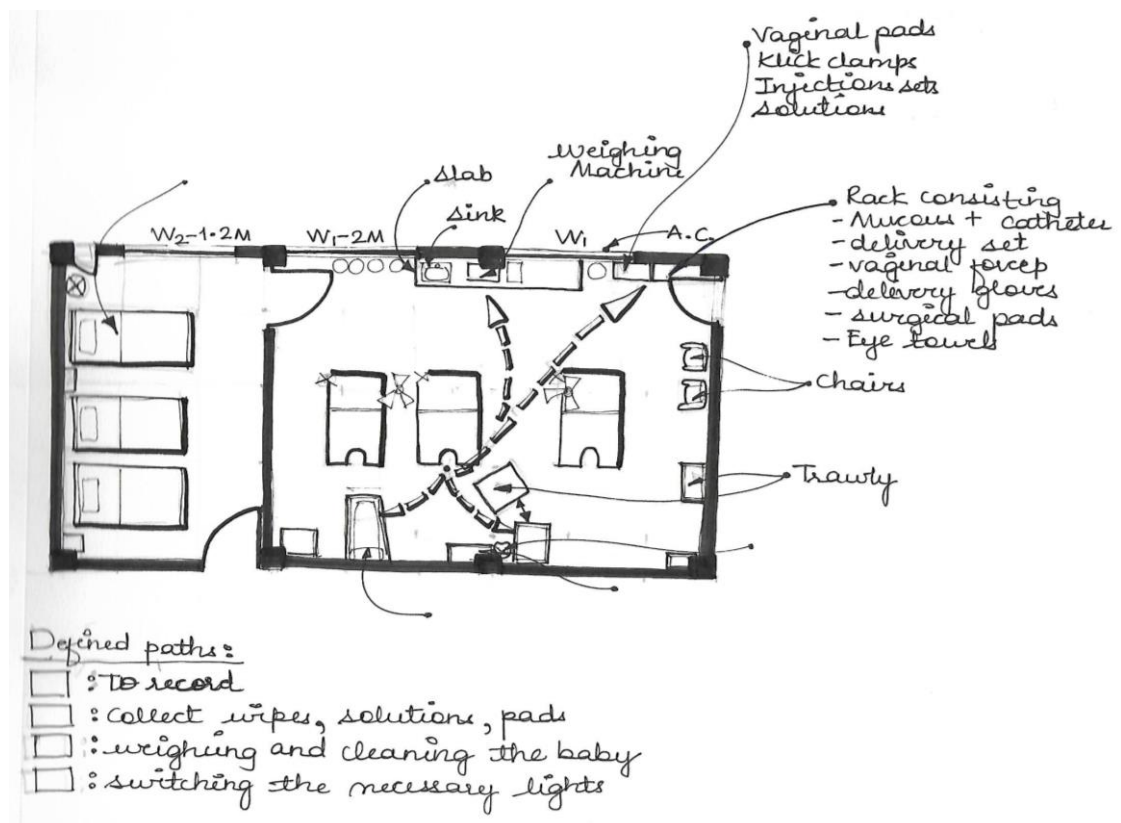 Vaginal pads
Klick clamps
Injections sets
solutions
Weighing
Machine
slab
sink
Rack consisting
- Mucous + catheter
- delivery set
- vaginal forcep
- delivery gloves
- surgical pads
- Eye towels
W2-1.2M
W1-2M
W1
A.C.
Chairs
Trawly
Defined paths:
: To record
: Collect wipes, solutions, pads
: weighing and cleaning the baby
: switching the necessary lights